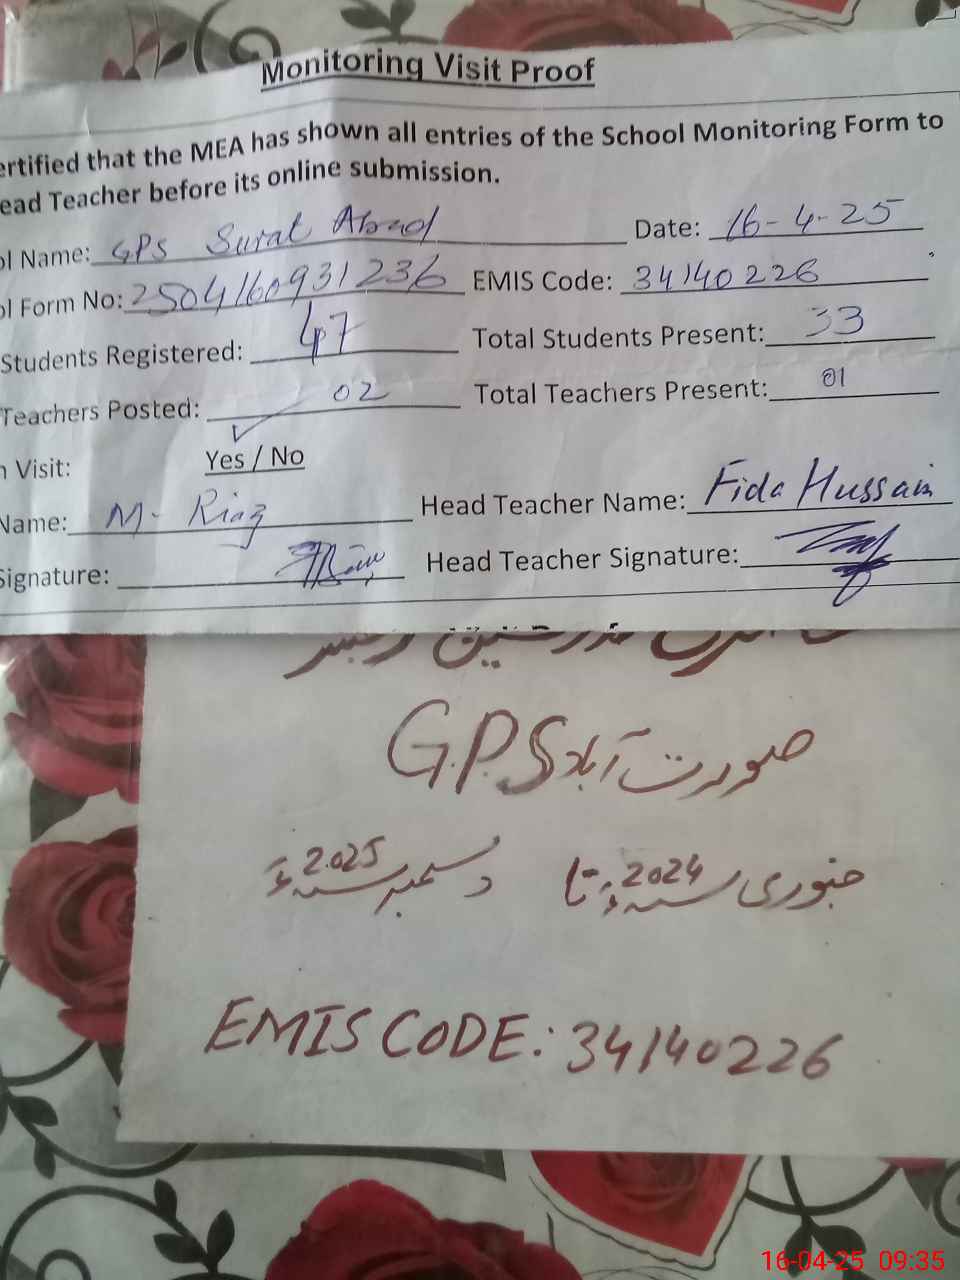 Monitoring Visit Proof
ertified that the MEA has shown all entries of the School Monitoring Form to
ead Teacher before its online submission.
ol Name: GPS Surat Abad Date: 16-4-25
ol Form No: 250416093 1236 EMIS Code: 34140226
Students Registered: 47 Total Students Present: 33
Teachers Posted: 02 Total Teachers Present: 01
n Visit: Yes / No
Name: M- Riaz Head Teacher Name: Fida Hussain
Signature: Head Teacher Signature:
G.P.S صورت آباد
جنوری سنہ 2024ء تا دسمبر سنہ 2025ء
EMIS CODE: 34140226
16-04-25 09:35